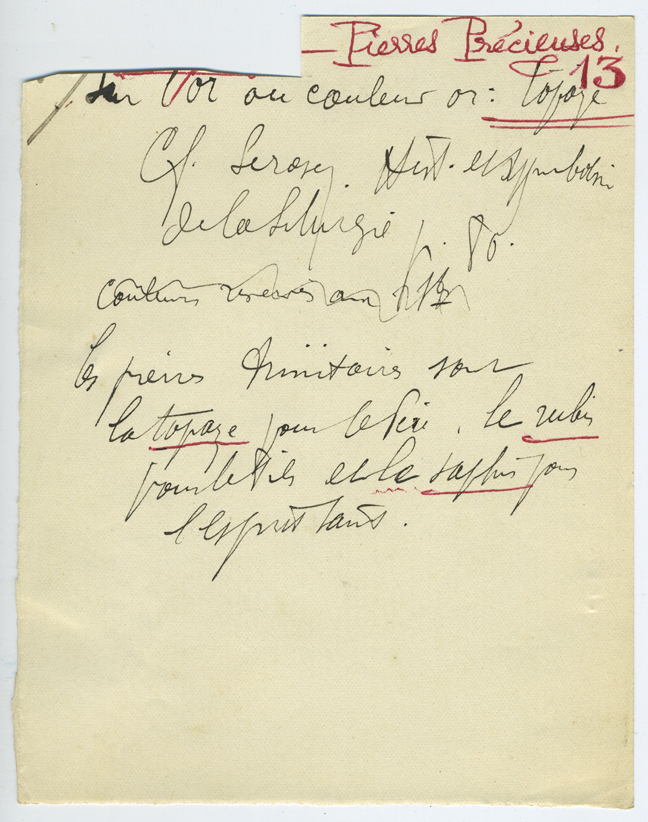 — Pierres Précieuses.
13
sur l'or ou couleur or : topaze
Cf. Lerosey. Hist. et Symbolis
de la Liturgie p. 80.
couleurs réservées aux
les pierres trinitaires sont
la topaze pour le Père, le rubis
pour le Fils et le saphir pour
l'esprit saint.